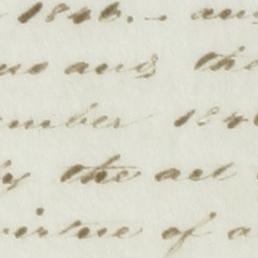 1846. – and
and the
ember 184
by the act
virtue of a